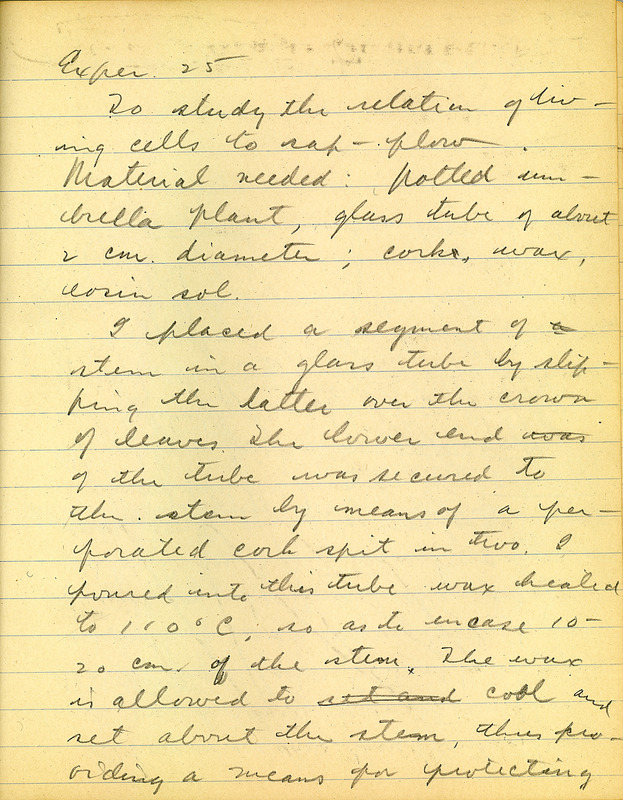 Exper. 25
To study the relation of liv-
ing cells to sap-flow.
Material needed: potted um-
brella plant, glass tube of about
2 cm. diameter; corks, wax,
eosin sol.
I placed a segment of a
stem in a glass tube by slip-
ping the latter over the crown
of leaves. The lower end was
of the tube was secured to
the stem by means of a per-
porated cork spit in two. I
poured into this tube wax heated
to 110° C, so as to incase 10-
20 cm. of the stem. The wax
is allowed to set and cool and
set about the stem, thus pro-
viding a means for protecting